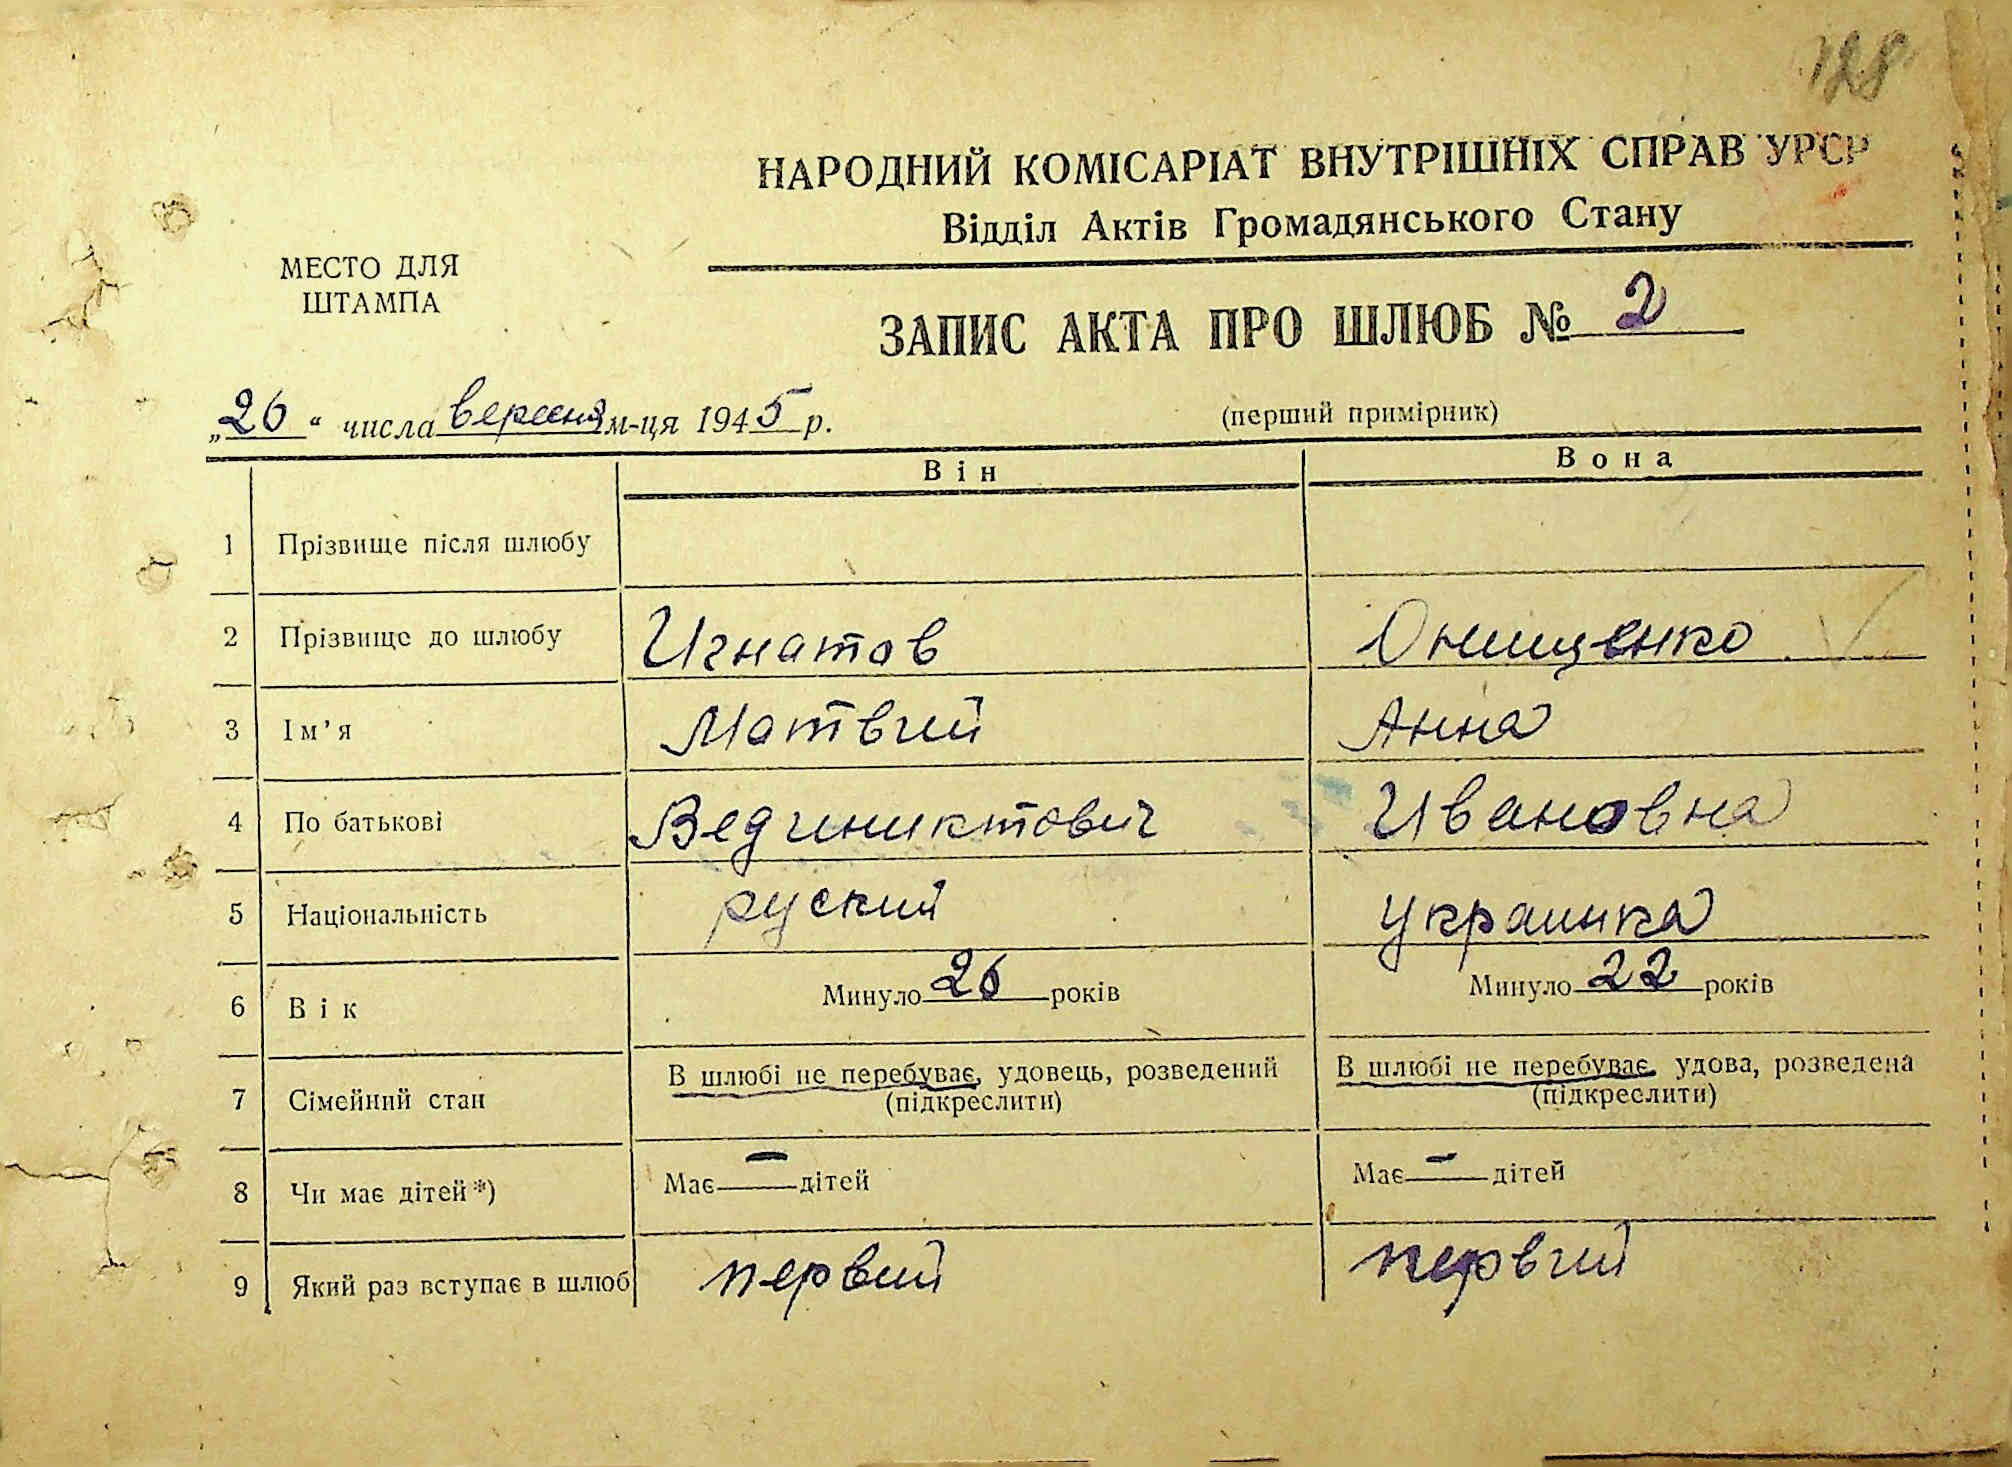 128
НАРОДНИЙ КОМІСАРІАТ ВНУТРІШНІХ СПРАВ УРСР
Відділ Актів Громадянського Стану
МЕСТО ДЛЯ
ШТАМПА
ЗАПИС АКТА ПРО ШЛЮБ № 2
„26“ числа вересня м-ця 1945 р.
(перший примірник)
Він Вона
1 Прізвище після шлюбу
2 Прізвище до шлюбу Игнатов Онищенко
3 Ім’я Матвий Анна
4 По батькові Вединиктович Ивановна
5 Національність руский украинка
6 Вік Минуло 26 років Минуло 22 років
7 Сімейний стан В шлюбі не перебуває, удовець, розведений В шлюбі не перебуває, удова, розведена
(підкреслити) (підкреслити)
8 Чи має дітей*) Має — дітей Має — дітей
9 Який раз вступає в шлюб первий первий